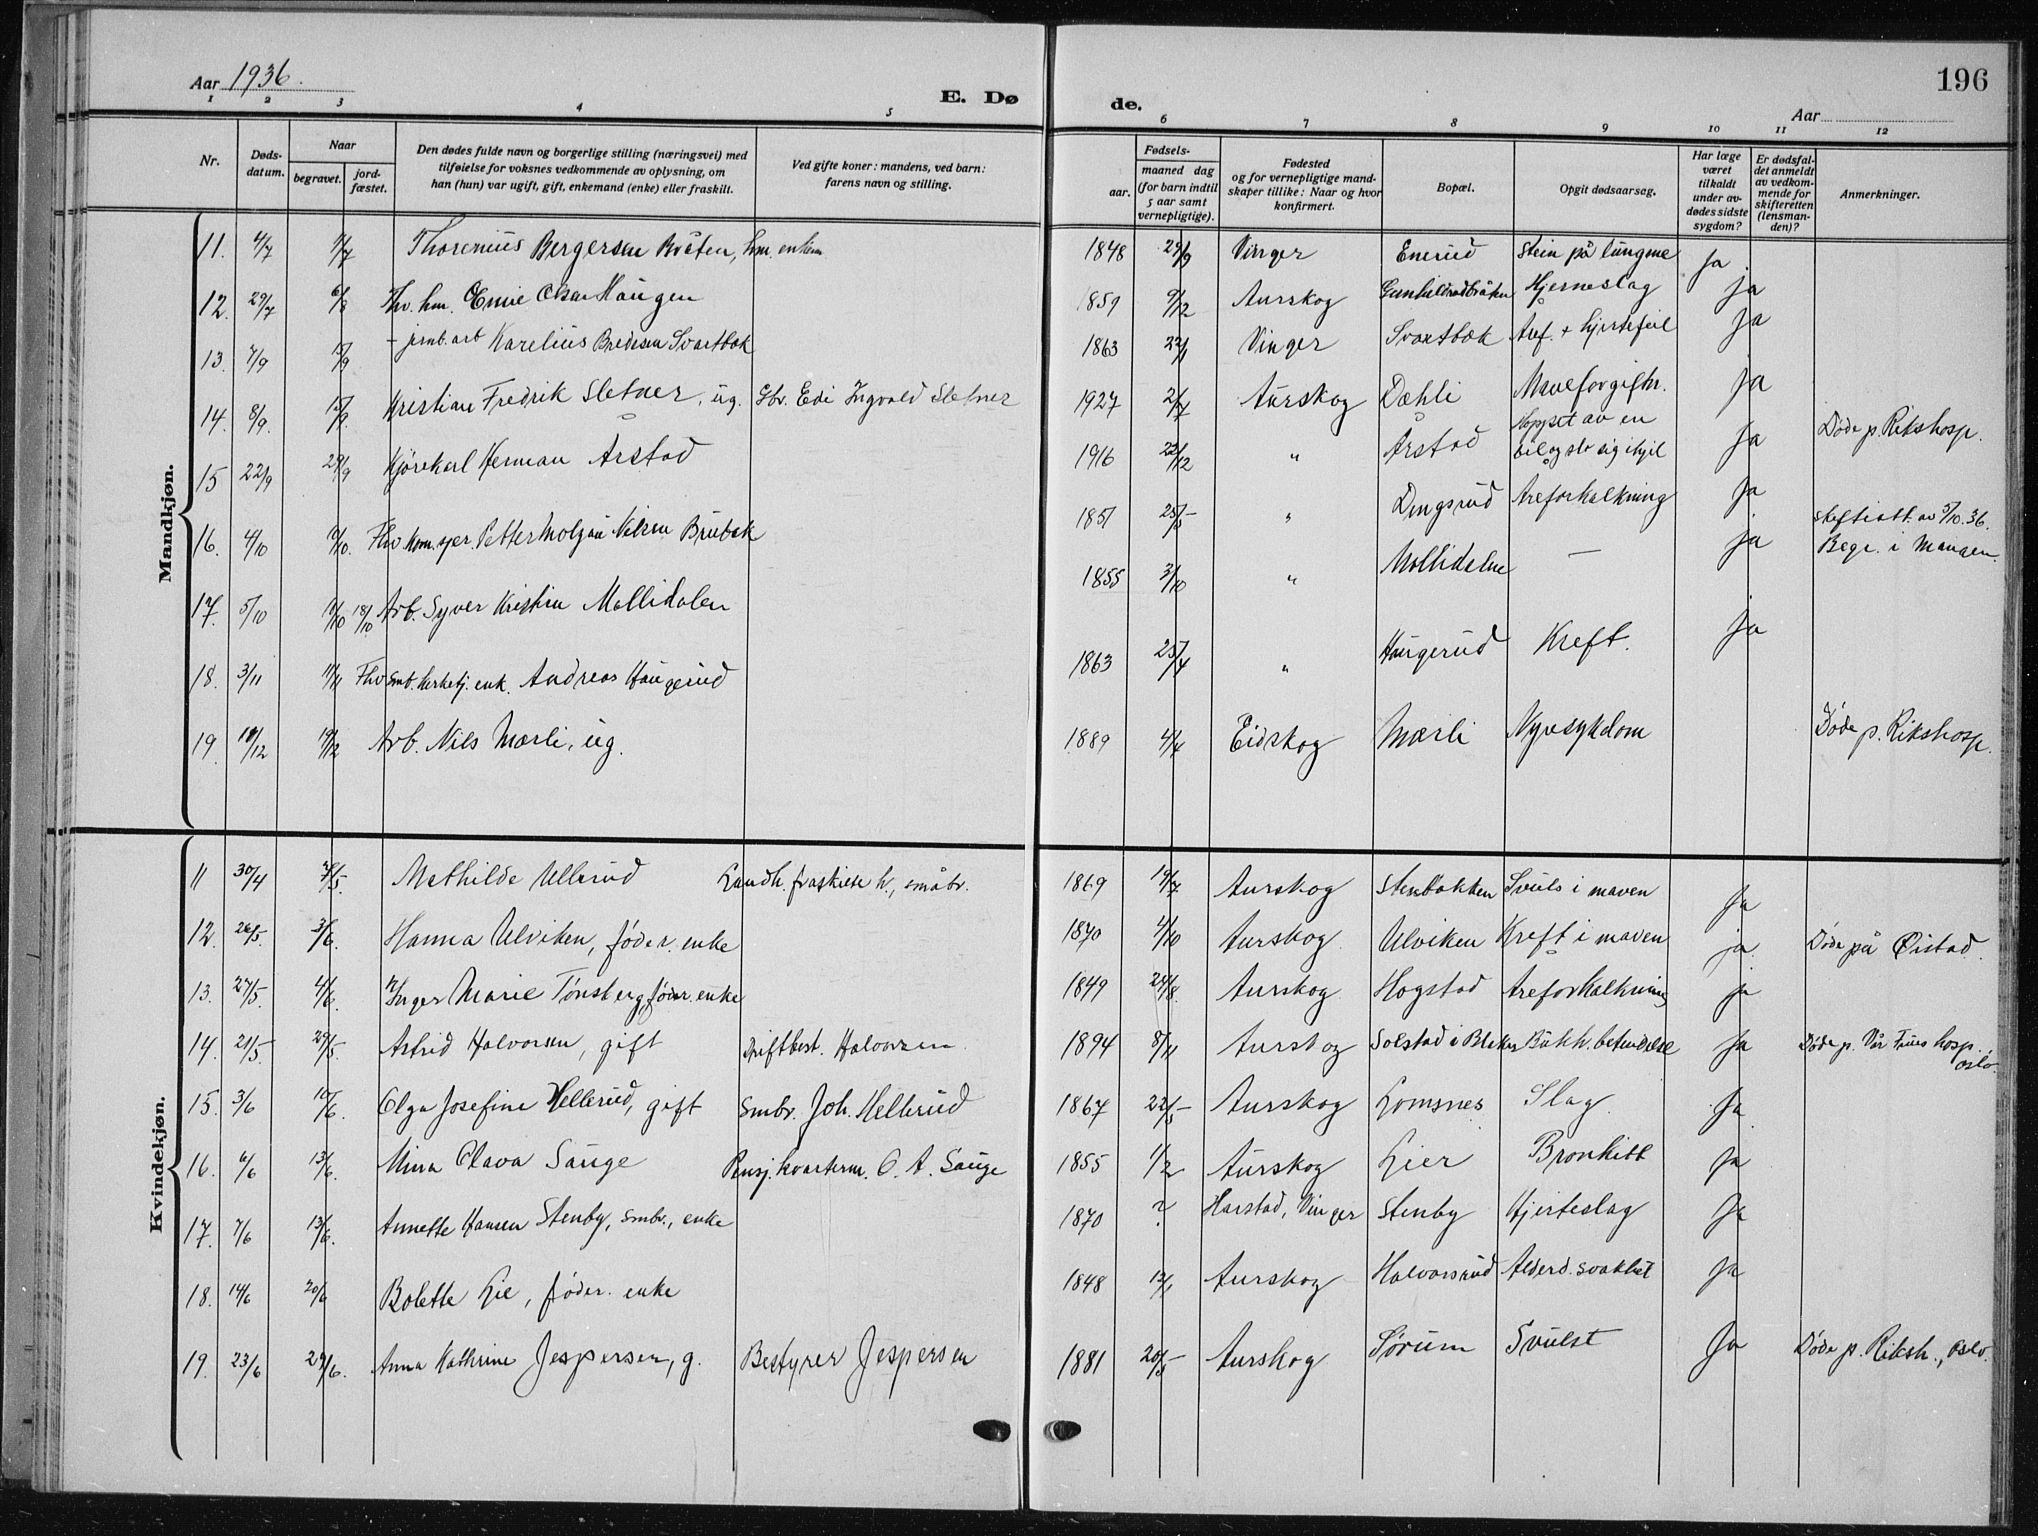 Aar 1936.
E. Døde.
Aar
196
1 2 3 4 5 6 7 8 9 10 11 12
Nr.
Dødsdatum.
Naar
begravet.
jordfæstet.
Den dødes fulde navn og borgerlige stilling (næringsvei) med
tilføielse for voksnes vedkommende av oplysning, om
han (hun) var ugift, gift, enkemand (enke) eller fraskilt.
Ved gifte koner: mandens, ved barn:
farens navn og stilling.
Fødsels-
aar.
maaned dag
(for barn indtil
5 aar samt
vernepligtige).
Fødested
og for vernepligtige mand-
skaper tillike: Naar og hvor
konfirmert.
Bopæl.
Opgit dødsaarsag.
Har læge
været
tilkaldt
under av-
dødes sidste
sygdom?
Er dødsfal-
det anmeldt
av vedkom-
mende for
skifteretten
(lensman-
den)?
Anmerkninger.
Mandkjøn.
11. 4/7 11/7 Thorenius Bergersen Bråten, hm. enkem 1848 29/9 Vinger Enerud Stein på lungene Ja
12. 29/7 6/8 Fhv. hm. Emil Olsen Haugen 1859 9/12 Aurskog Gunhildrudbråten Hjerneslag Ja
13. 7/9 12/9 - jernb.arb Karelius Bredesen Svartbæk 1863 22/1 Vinger Svartbæk Åref. + hjertefeil Ja
14. 8/9. 12/9. Kristian Fredrik Sletner, ug. Gbr. Edi Ingvald Sletner 1927 2/7 Aurskog Dæhli Maveforgiftn. Ja
15 22/9 29/9 Kjørekarl Herman Årstad 1916 22/12 " Årstad Hoppet av en
bil og slo sig ihjel Ja Døde p. Rikshosp.
16. 4/10 10/10. Fhv kom.sjer. Petter Nilsen Brubæk 1851 25/5 " Dingsrud Åreforkalkning Ja Skifteatt. av 5/10.36.
17. 5/10 10/10 18/10 Arb. Syver Kristian Mollidalen 1855 3/10 " Mollidalen — Ja Begr. i Mangen.
18. 3/11 11/11 Fhv smb. kirketj. enk. Andreas Haugerud 1863 25/4 " Haugerud Kreft. Ja
19. 10/12 19/12 Arb. Nils Mærli, ug. 1889 4/4 Eidskog Mærli Nyresykdom Døde p. Rikshosp.
Kvindekjøn.
11 30/4 7/5. Mathilde Ullerud Landh. fraskilt h., småbr. 1869 19/7 Aurskog Stenbakken Svuls i maven Ja
12. 26/5. 3/6. Hanna Ulviken, føder. enke 1870 4/10 Aurskog Ulviken Kreft i maven ja. Døde på Øistad.
13. 27/5. 4/6. Inger Marie Tønsberg, føder. enke 1849 24/8. Aurskog Hogstad Åreforkalkning ja
14. 21/5. 29/5. Astrid Halvorsen, gift Driftbest. Halvorsen 1894 8/11 Aurskog Solstad i Blaker Bukh. betendelse Ja Døde p. Vår Frues hosp.
Oslo.
15. 3/6 10/6. Olga Josefine Hellerud, gift Smbr. Joh. Hellerud 1867 22/5 Aurskog Lomsnes Slag. Ja
16. 6/6 13/6. Mina Olava Sauge Pensj. kvarterm. O. A. Sauge 1855 1/2 Aurskog Lier Bronkitt ja
17. 7/6 13/6. Annette Hansen Stenby, smbr., enke 1870 ? Harstad, Vinger Stenby Hjerteslag Ja
18. 14/6 20/6 Bolette Lie, føder. enke 1848 12/1 Aurskog Halvorsrud Alderd. svakhet Ja
19. 23/6 29/6. Anna Kathrine Jespersen, g. Bestyrer Jespersen 1881 20/5 Aurskog Sørum Svulst Ja Døde p. Riksh., Oslo.